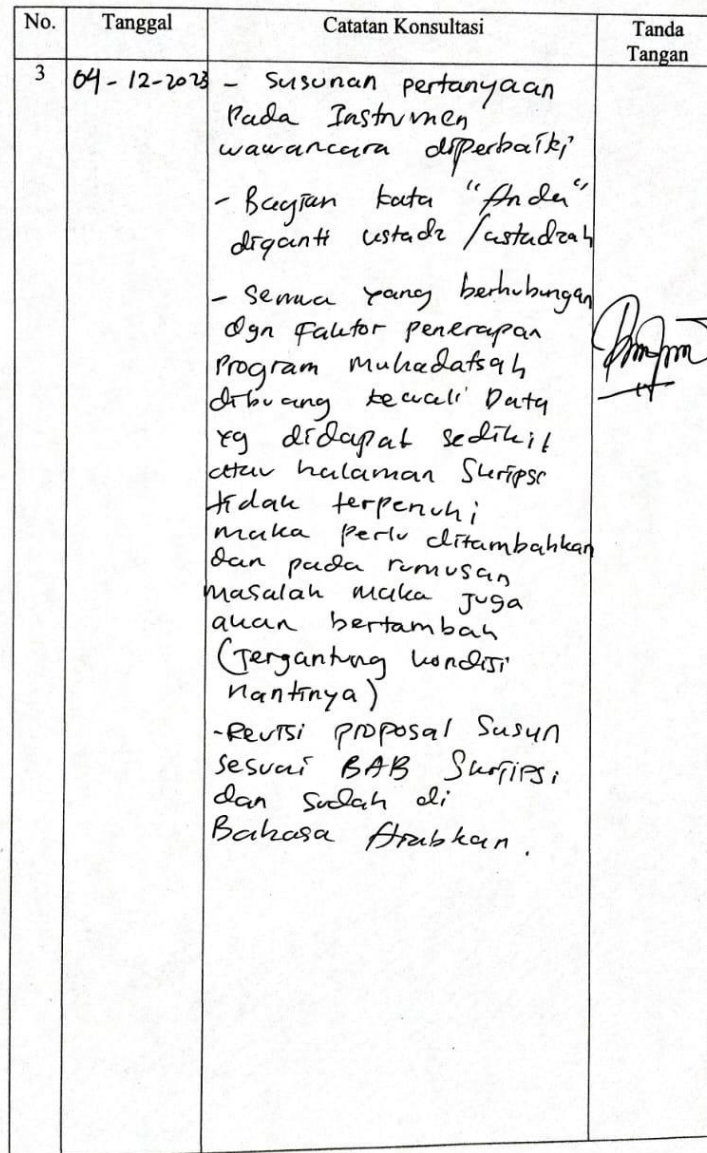 No. Tanggal Catatan Konsultasi Tanda
Tangan
3 04-12-2023 - Susunan pertanyaan
Pada Instrumen
wawancara diperbaiki
- Bagian kata "Anda"
diganti ustadz /ustadzah
- Semua yang berhubungan
dgn Faktor penerapan
Program Muhadatsah
dibuang kecuali Data
yg didapat sedikit
atau halaman Skripsi
tidak terpenuhi
maka perlu ditambahkan
dan pada rumusan
masalah maka Juga
akan bertambah
(Tergantung kondisi
nantinya)
-Revisi proposal Susun
sesuai BAB Skripsi
dan sudah di
Bahasa Arabkan.